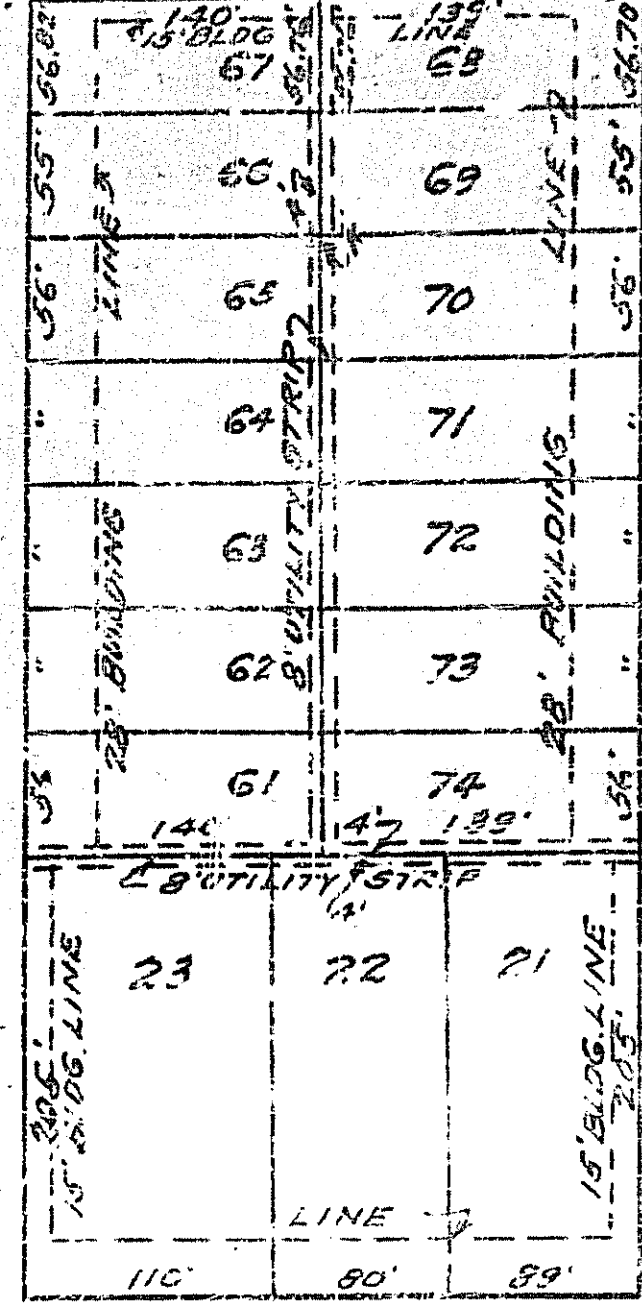 140' 139'
15' BLDG LINE
56.82' 67 56.74' 68 56.70'
55' 66 4' 69 55'
56' 65 70 56'
" 64 71 "
" 63 72 "
" 62 73 "
56' 61 74 56'
28' BUILDING LINE
8' UTILITY STRIP
28' BUILDING LINE
140' 4' 139'
8' UTILITY STRIP
4'
23 22 21
205'
15' BLDG. LINE
15' BLDG. LINE
205'
LINE
110' 80' 89'